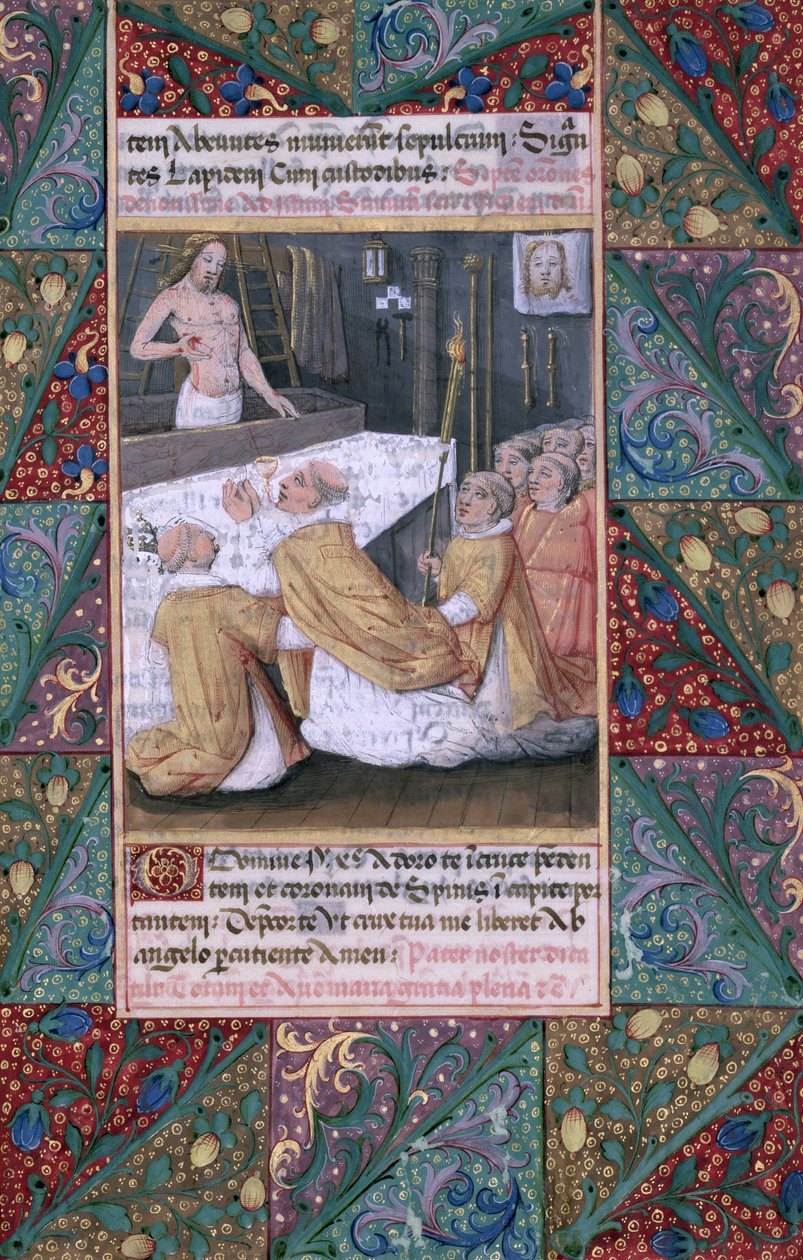 tem Abeuntes munierūt sepulcrum: Signā
tes Lapidem Cum custodibus: Septē orōnes
O Domine Ihū xp̄e Adoro te ī cruce pēden
tem et coronam de Spinis ī capite por
tantem: Depcor te vt crux tua me liberet Ab
angelo percutiente Amen: Pater noster dica
tur Totum et Aue maria gratia plena